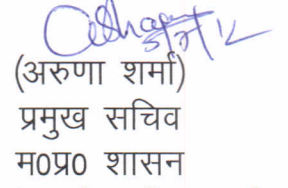 (अरुणा शर्मा)
प्रमुख सचिव
म0प्र0 शासन